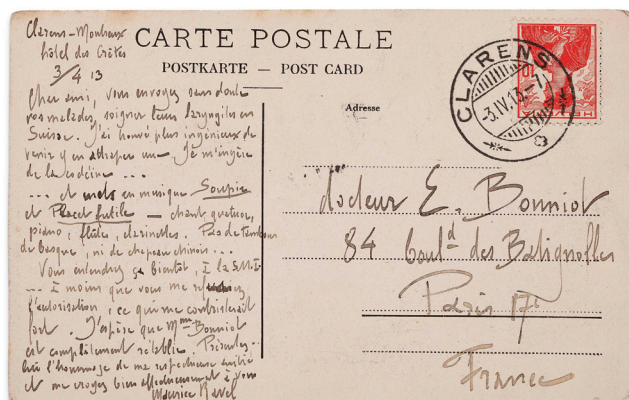 Clarens-Montreux
hôtel des Crêtes
3/4 13
CARTE POSTALE
POSTKARTE — POST CARD
Adresse
Cher ami, vous envoyez sans doute
vos malades, soigner leurs laryngites en
Suisse. J'ai trouvé plus ingénieux de
venir y en attraper une. Je m'ingère
de la codéine ...
... et mets en musique Soupir
et Placet futile — chant, quatuor,
piano, flûtes, clarinettes. Pas de tambour
de basque, ni de chapeau chinois ...
Vous entendrez ça bientôt, à la S.M.I.
... à moins que vous me
l'autorisation, ce qui me contristerait
fort. J'espère que Mme Bonniot
est complètement rétablie. Présentez-
lui l'hommage de ma respectueuse amitié
et me croyez bien affectueusement à vous
Maurice Ravel
CLARENS
-3.IV.13.-7
HELVETIA
10
docteur E. Bonniot
84 boul^d des Batignolles
Paris 17e
France